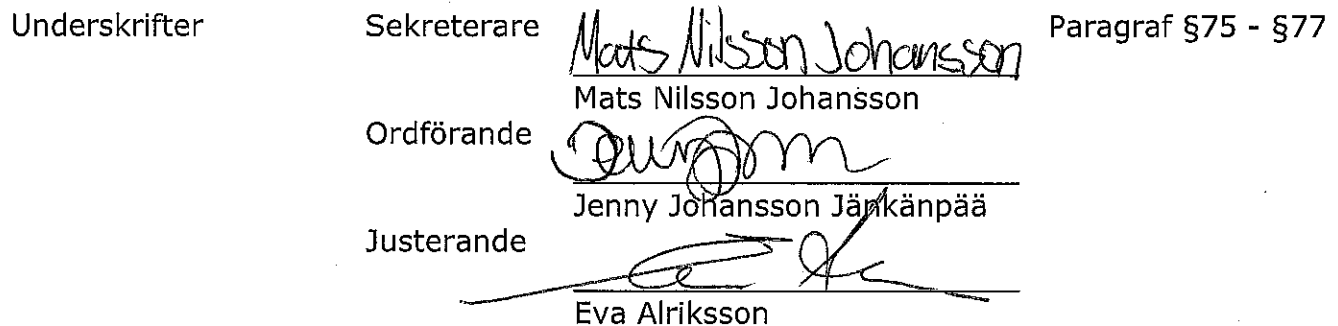 Underskrifter Sekreterare Mats Nilsson Johansson Paragraf §75 - §77
Mats Nilsson Johansson
Ordförande
Jenny Johansson Jänkänpää
Justerande
Eva Alriksson